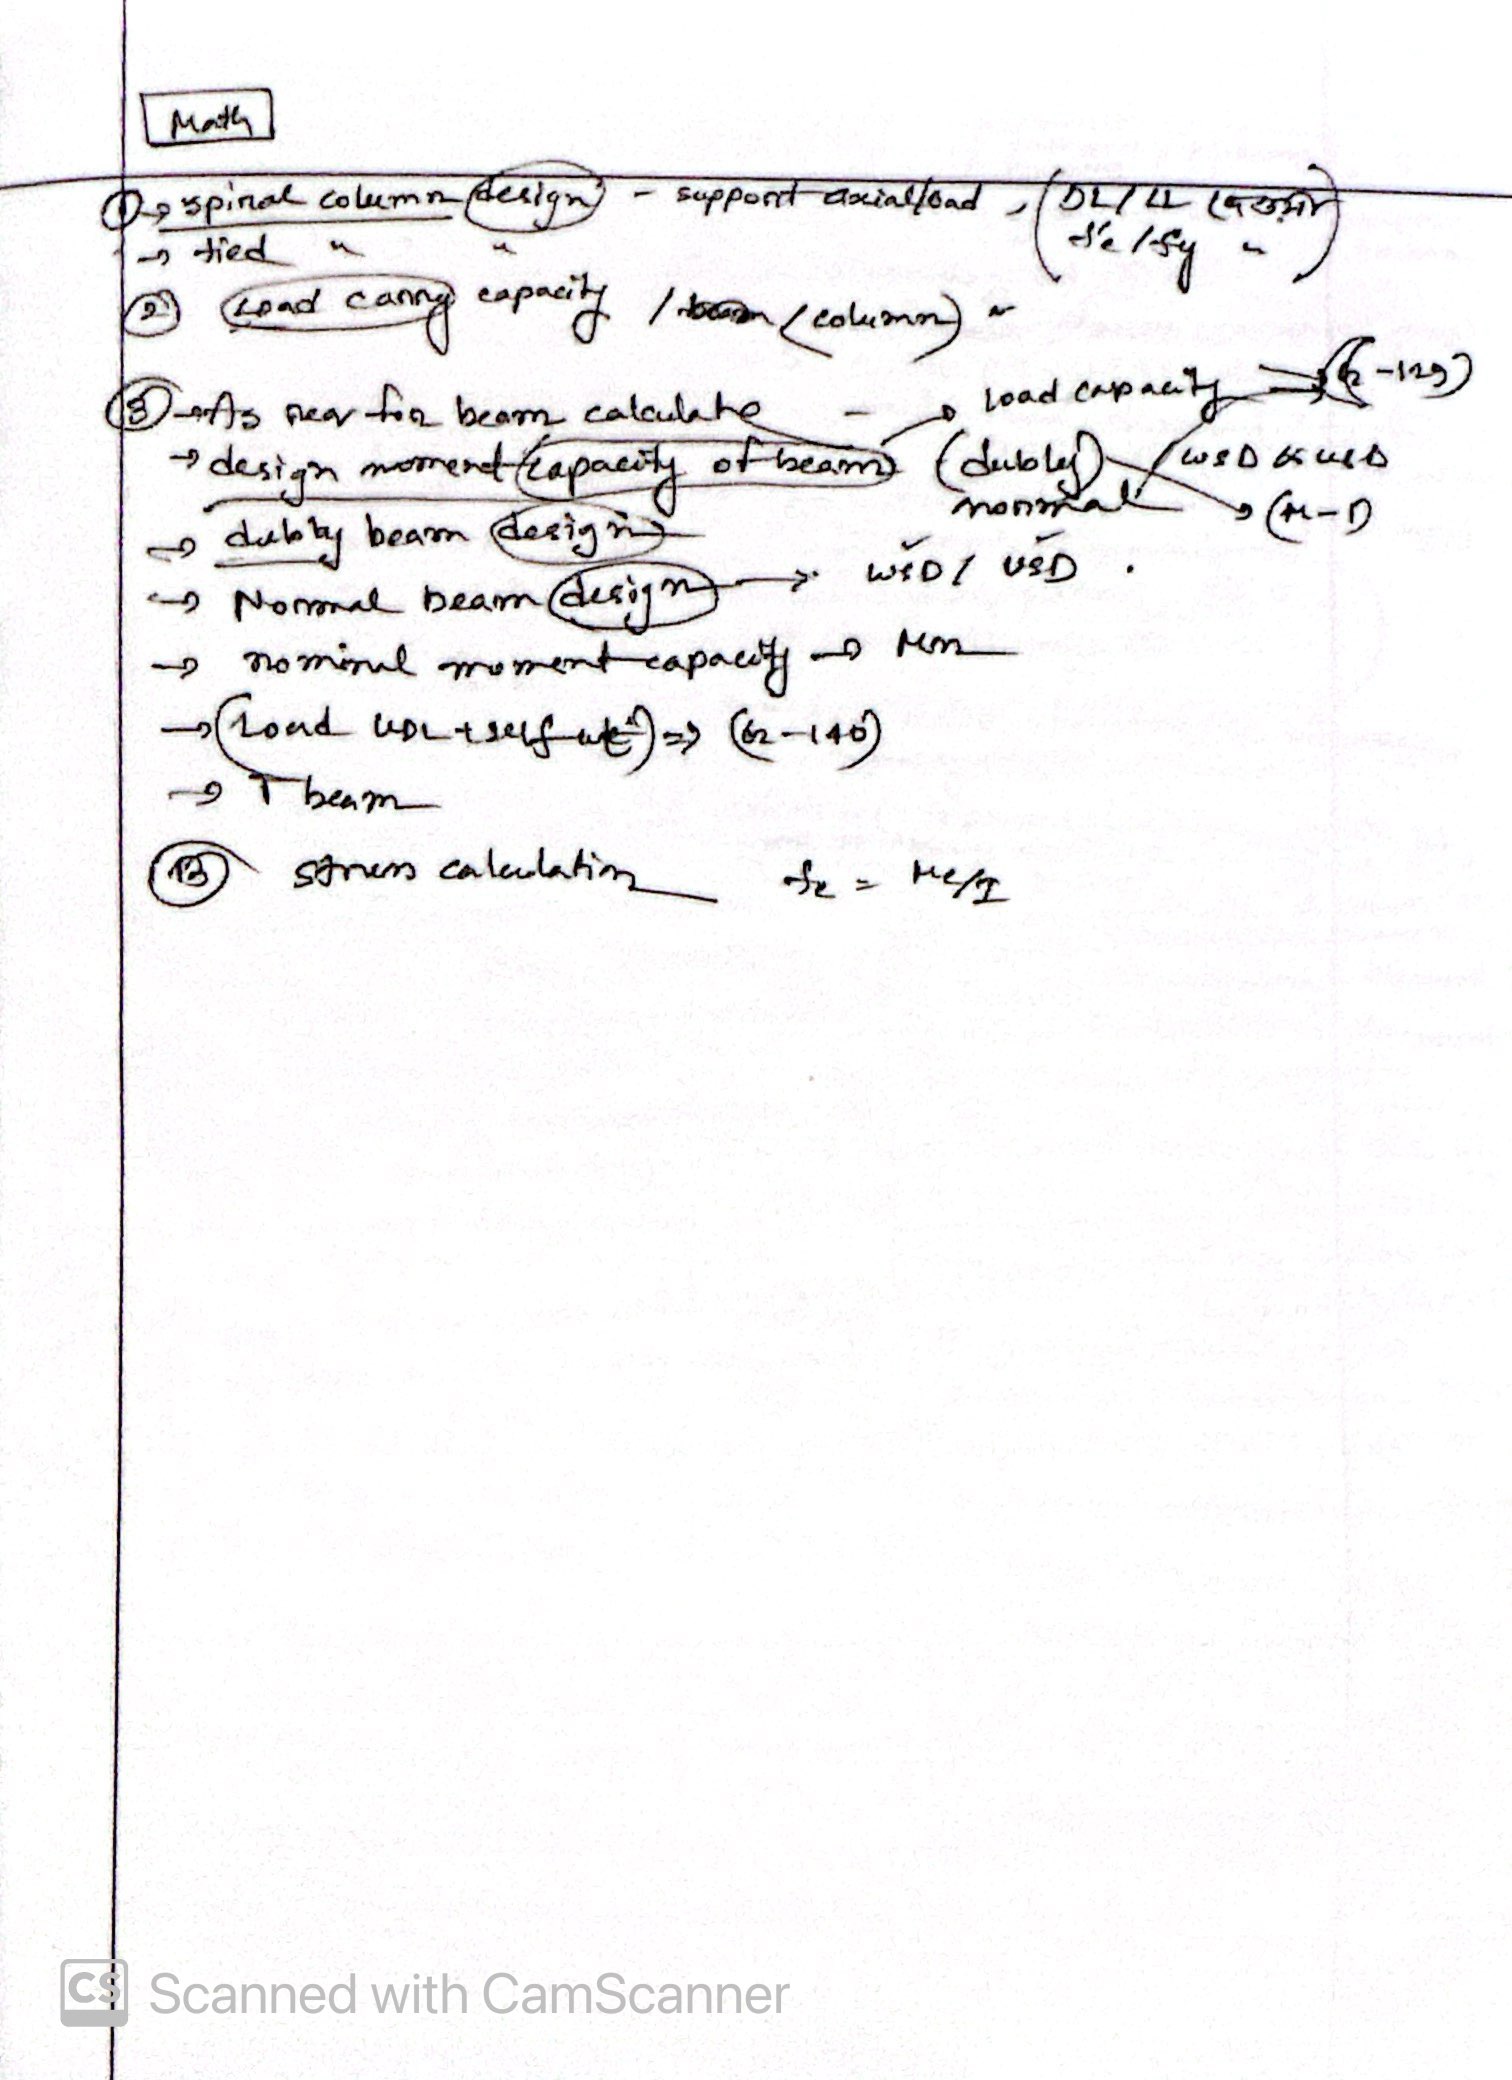 Math
① → spiral column design - support axial load, (DL/LL দেওয়া
→ tied " " f'c/fy ")
② Load carry capacity / (column) "
③ → As req for beam calculate - → load capacity → (G2-129)
→ design moment capacity of beam (dubly) normal / WSD & USD
→ (M-1)
→ dubly beam design
→ Normal beam design → WSD / USD .
→ nominal moment capacity → Mn
→ (Load UDL + self wt) => (G2-140)
→ T beam
stress calculation fc = Mc/I
CS Scanned with CamScanner